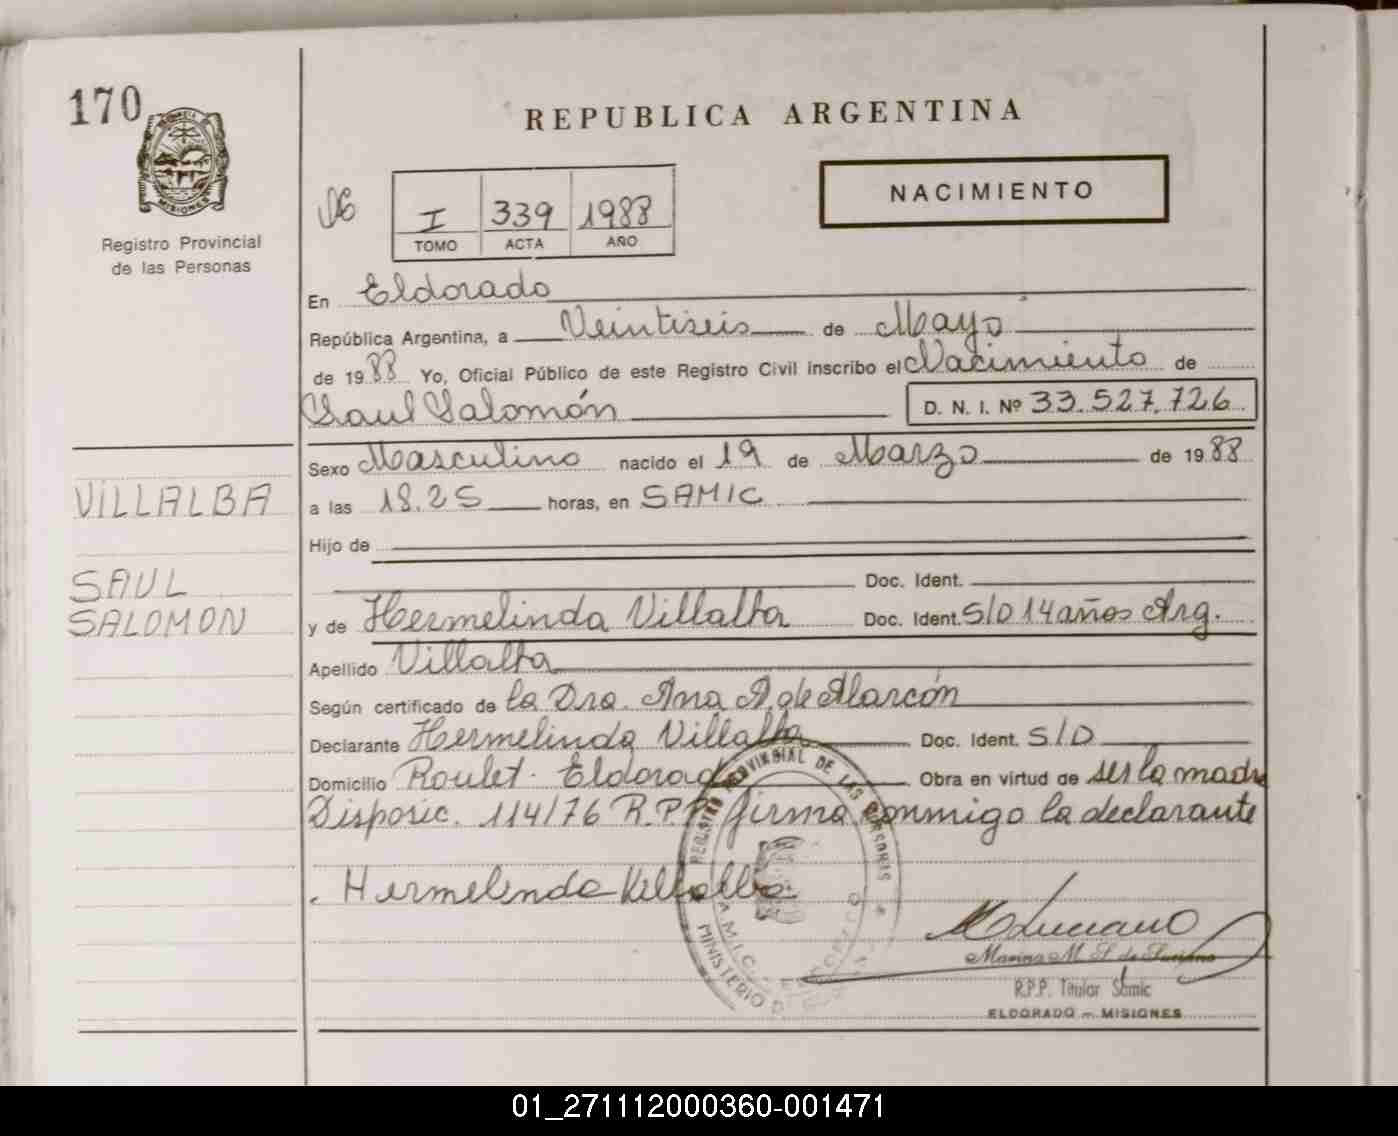 170
PROVINCIA
MISIONES
Registro Provincial
de las Personas
REPUBLICA ARGENTINA
I 339 1988
TOMO ACTA AÑO
NACIMIENTO
En Eldorado
República Argentina, a Veintiseis de Mayo
de 1988 Yo, Oficial Público de este Registro Civil inscribo el Nacimiento de
Saul Salomón D. N. I. Nº 33.527.726
Sexo Masculino nacido el 19 de Marzo de 1988
VILLALBA
a las 18.25 horas, en SAMIC
Hijo de
Doc. Ident.
SAUL
SALOMON
y de Hermelinda Villalba Doc. Ident. S/D 14 años Arg.
Apellido Villalba
Según certificado de la Dra. Ana A. de Alarcón
Declarante Hermelinda Villalba Doc. Ident. S/D
Domicilio Roulet. Eldorado Obra en virtud de ser la madre
Disposic. 114/76 R.P.P. firma conmigo la declarante
Hermelinda Villalba
REGISTRO PROVINCIAL DE LAS PERSONAS
MINISTERIO
Luciano
Marina M. S. de Luciano
R.P.P. Titular Samic
ELDORADO - MISIONES
01_271112000360-001471